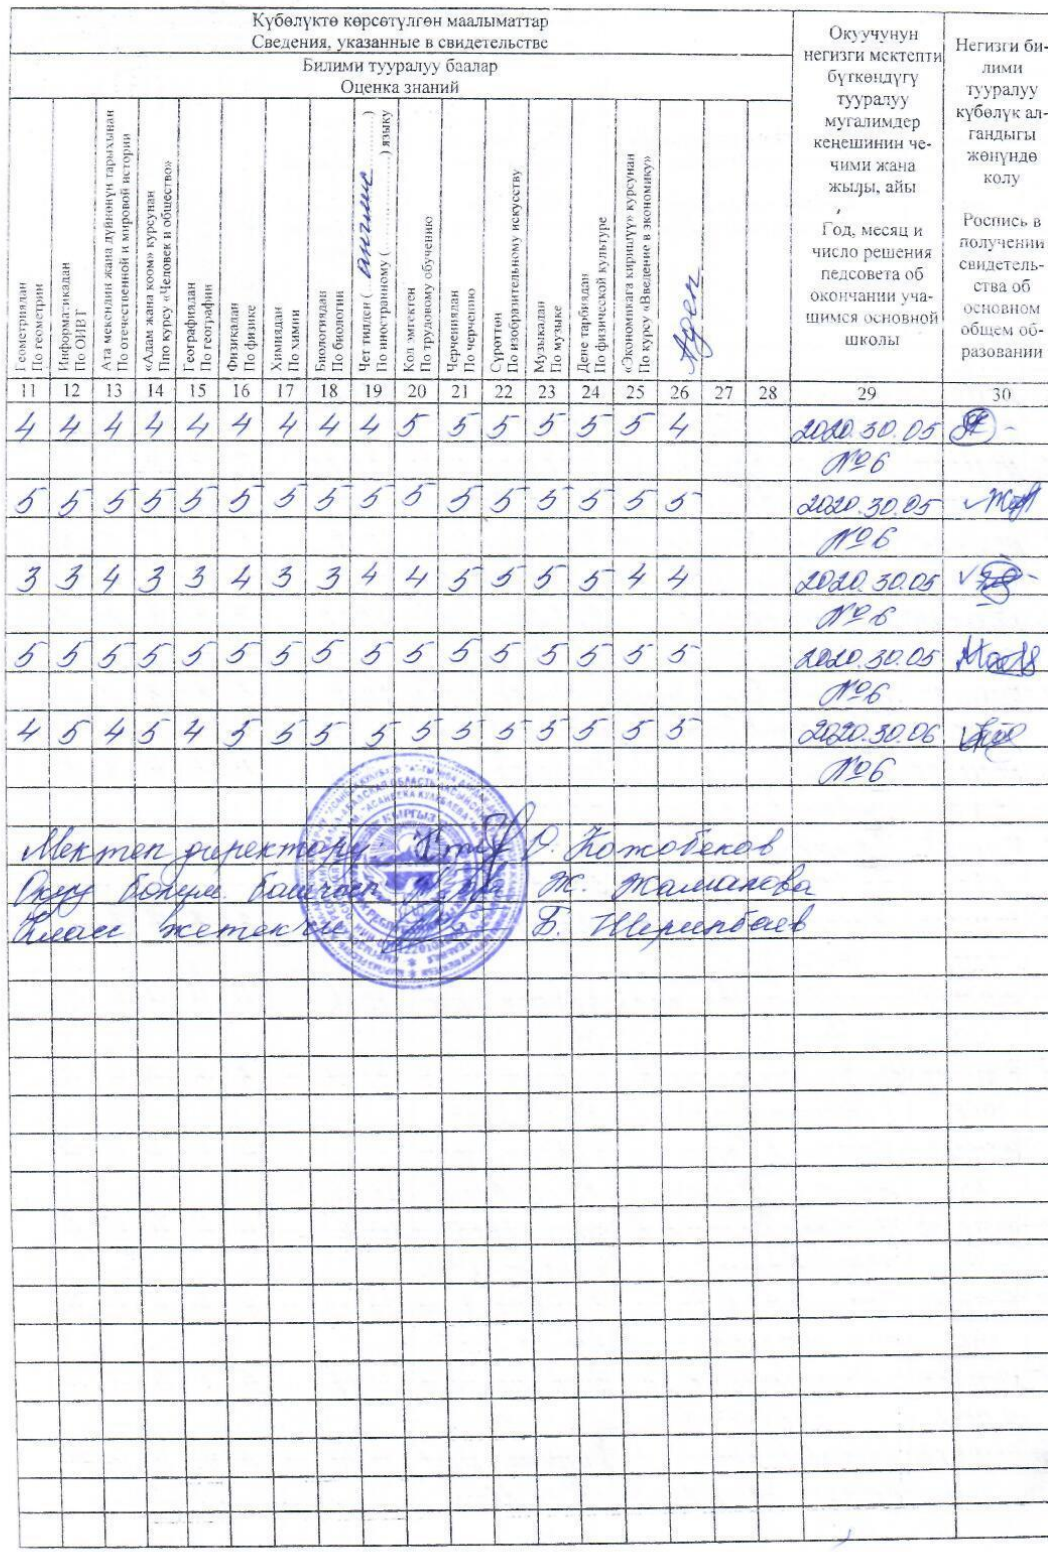 Күбөлүктө көрсөтүлгөн маалыматтар
Сведения, указанные в свидетельстве
Билими тууралуу баалар
Оценка знаний
Геометриядан
По геометрии
Информатикадан
По ОИВТ
Ата мекендин жана дүйнөнүн тарыхынан
По отечественной и мировой истории
«Адам жана коом» курсунан
Ппо курсу «Человек и общество»
Географиядан
По географии
Физикадан
По физике
Химиядан
По химии
Биологиядан
По биологии
Чет тилден (...англис...)
По иностранному (............) языку
Кол эмгектен
По трудовому обучению
Черчениядан
По черчению
Сүрөттөн
По изобразительному искусству
Музыкадан
По музыке
Дене тарбиядан
По физической культуре
«Экономикага киришүү» курсунан
По курсу «Введение в экономику»
Адеп
Окуучунун
негизги мектепти
бүткөндүгү
тууралуу
мугалимдер
кеңешинин че-
чими жана
жылы, айы
Год, месяц и
число решения
педсовета об
окончании уча-
щимся основной
школы
Негизги би-
лими
тууралуу
күбөлүк ал-
гандыгы
жөнүндө
колу
Роспись в
получении
свидетель-
ства об
основном
общем об-
разовании
11 12 13 14 15 16 17 18 19 20 21 22 23 24 25 26 27 28 29 30
4 4 4 4 4 4 4 4 4 5 5 5 5 5 5 4 2020.30.05
№6
5 5 5 5 5 5 5 5 5 5 5 5 5 5 5 5 2020.30.05
№6
3 3 4 3 3 4 3 3 4 4 5 5 5 5 4 4 2020.30.05
№6
5 5 5 5 5 5 5 5 5 5 5 5 5 5 5 5 2020.30.05
№6
4 5 4 5 4 5 5 5 5 5 5 5 5 5 5 5 2020.30.06
№6
Мектеп директору Кожобеков
Окуу бөлүм. башчысы Ж. Жаманова
Класс жетекчи Б. Шерипбаев